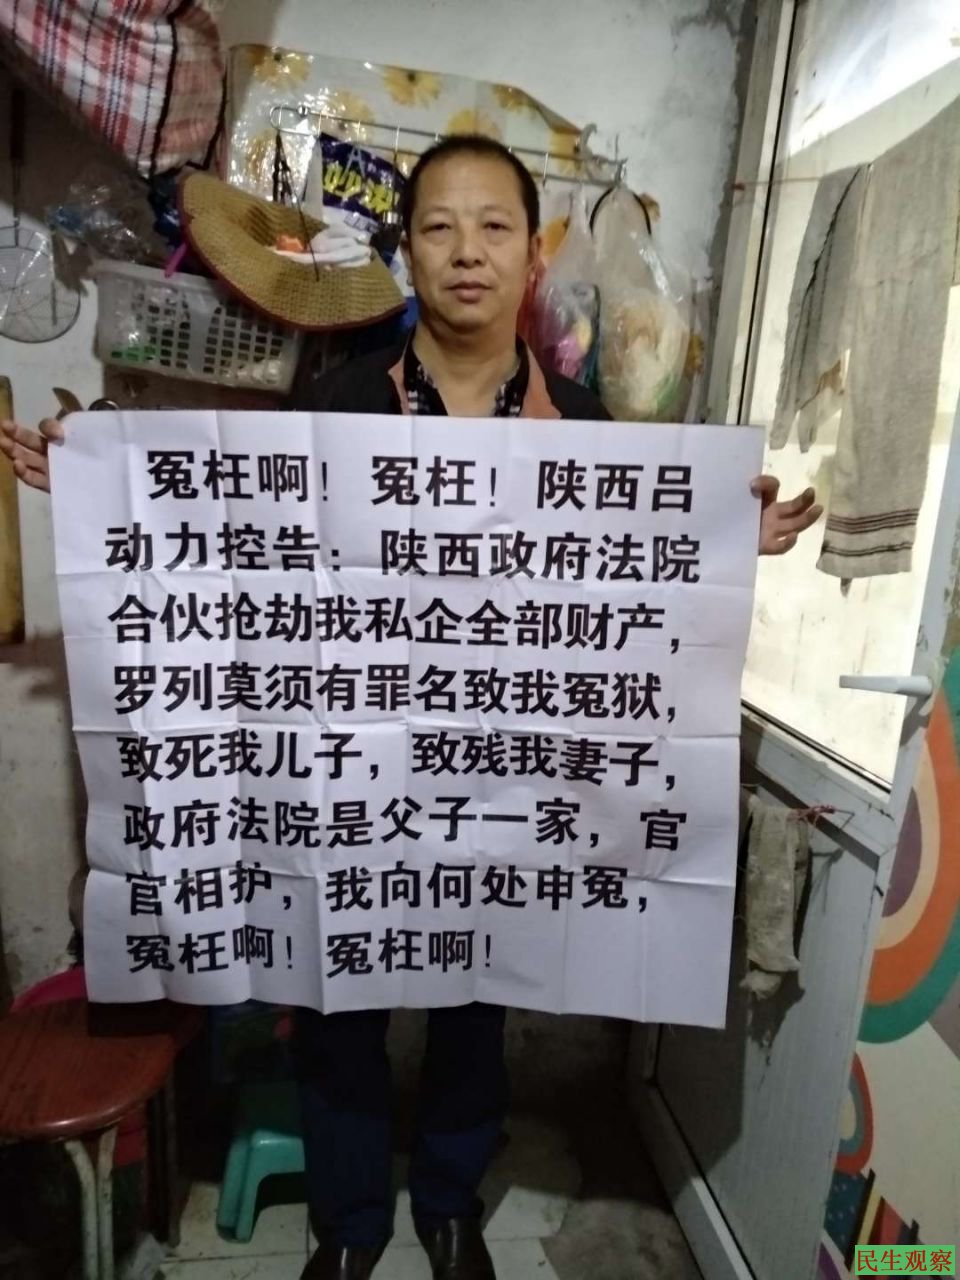 冤枉啊！冤枉！陕西吕
动力控告：陕西政府法院
合伙抢劫我私企全部财产，
罗列莫须有罪名致我冤狱，
致死我儿子，致残我妻子，
政府法院是父子一家，官
官相护，我向何处申冤，
冤枉啊！冤枉啊！
民生观察